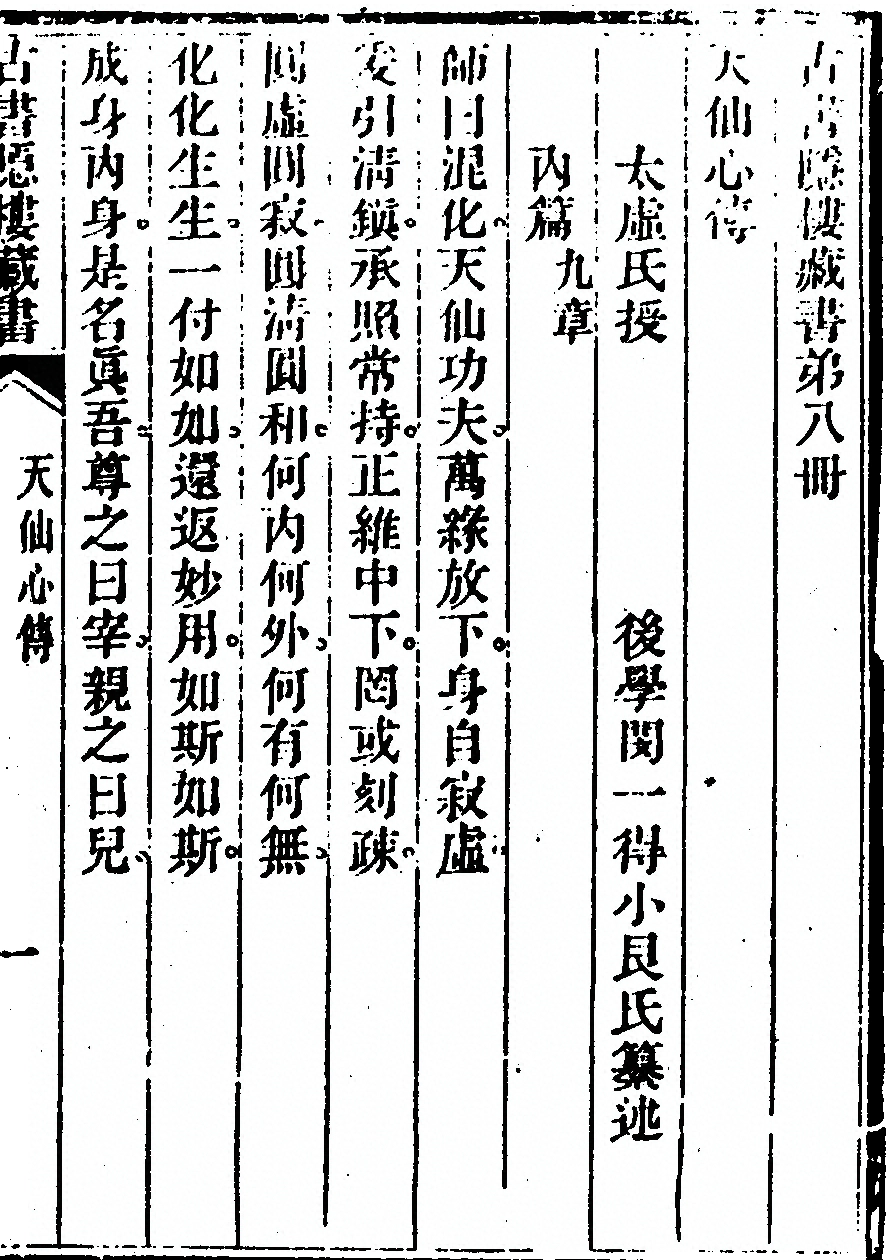 古書隱樓藏書第八冊
天仙心傳
太虛氏授　後學閔一得小艮氏纂述
內篇九章
師曰混化。天仙功夫。萬緣放下。身自寂虛。
爰引清鎮。承照常持。正維中下。罔或刻疎。
圓虛圓寂。圓清圓和。何內何外。何有何無。
化化生生。一付如如。還返妙用。如斯如斯。
成身內身。是名眞吾。尊之曰宰。親之曰兒。
古書隱樓藏書　天仙心傳　一